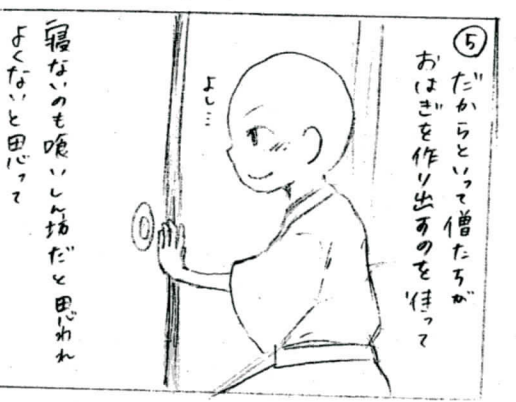 ⑤
だからといって僧たちが
おはぎを作り出すのを待って
よし…
寝ないのも喰いしん坊だと思われ
よくないと思って